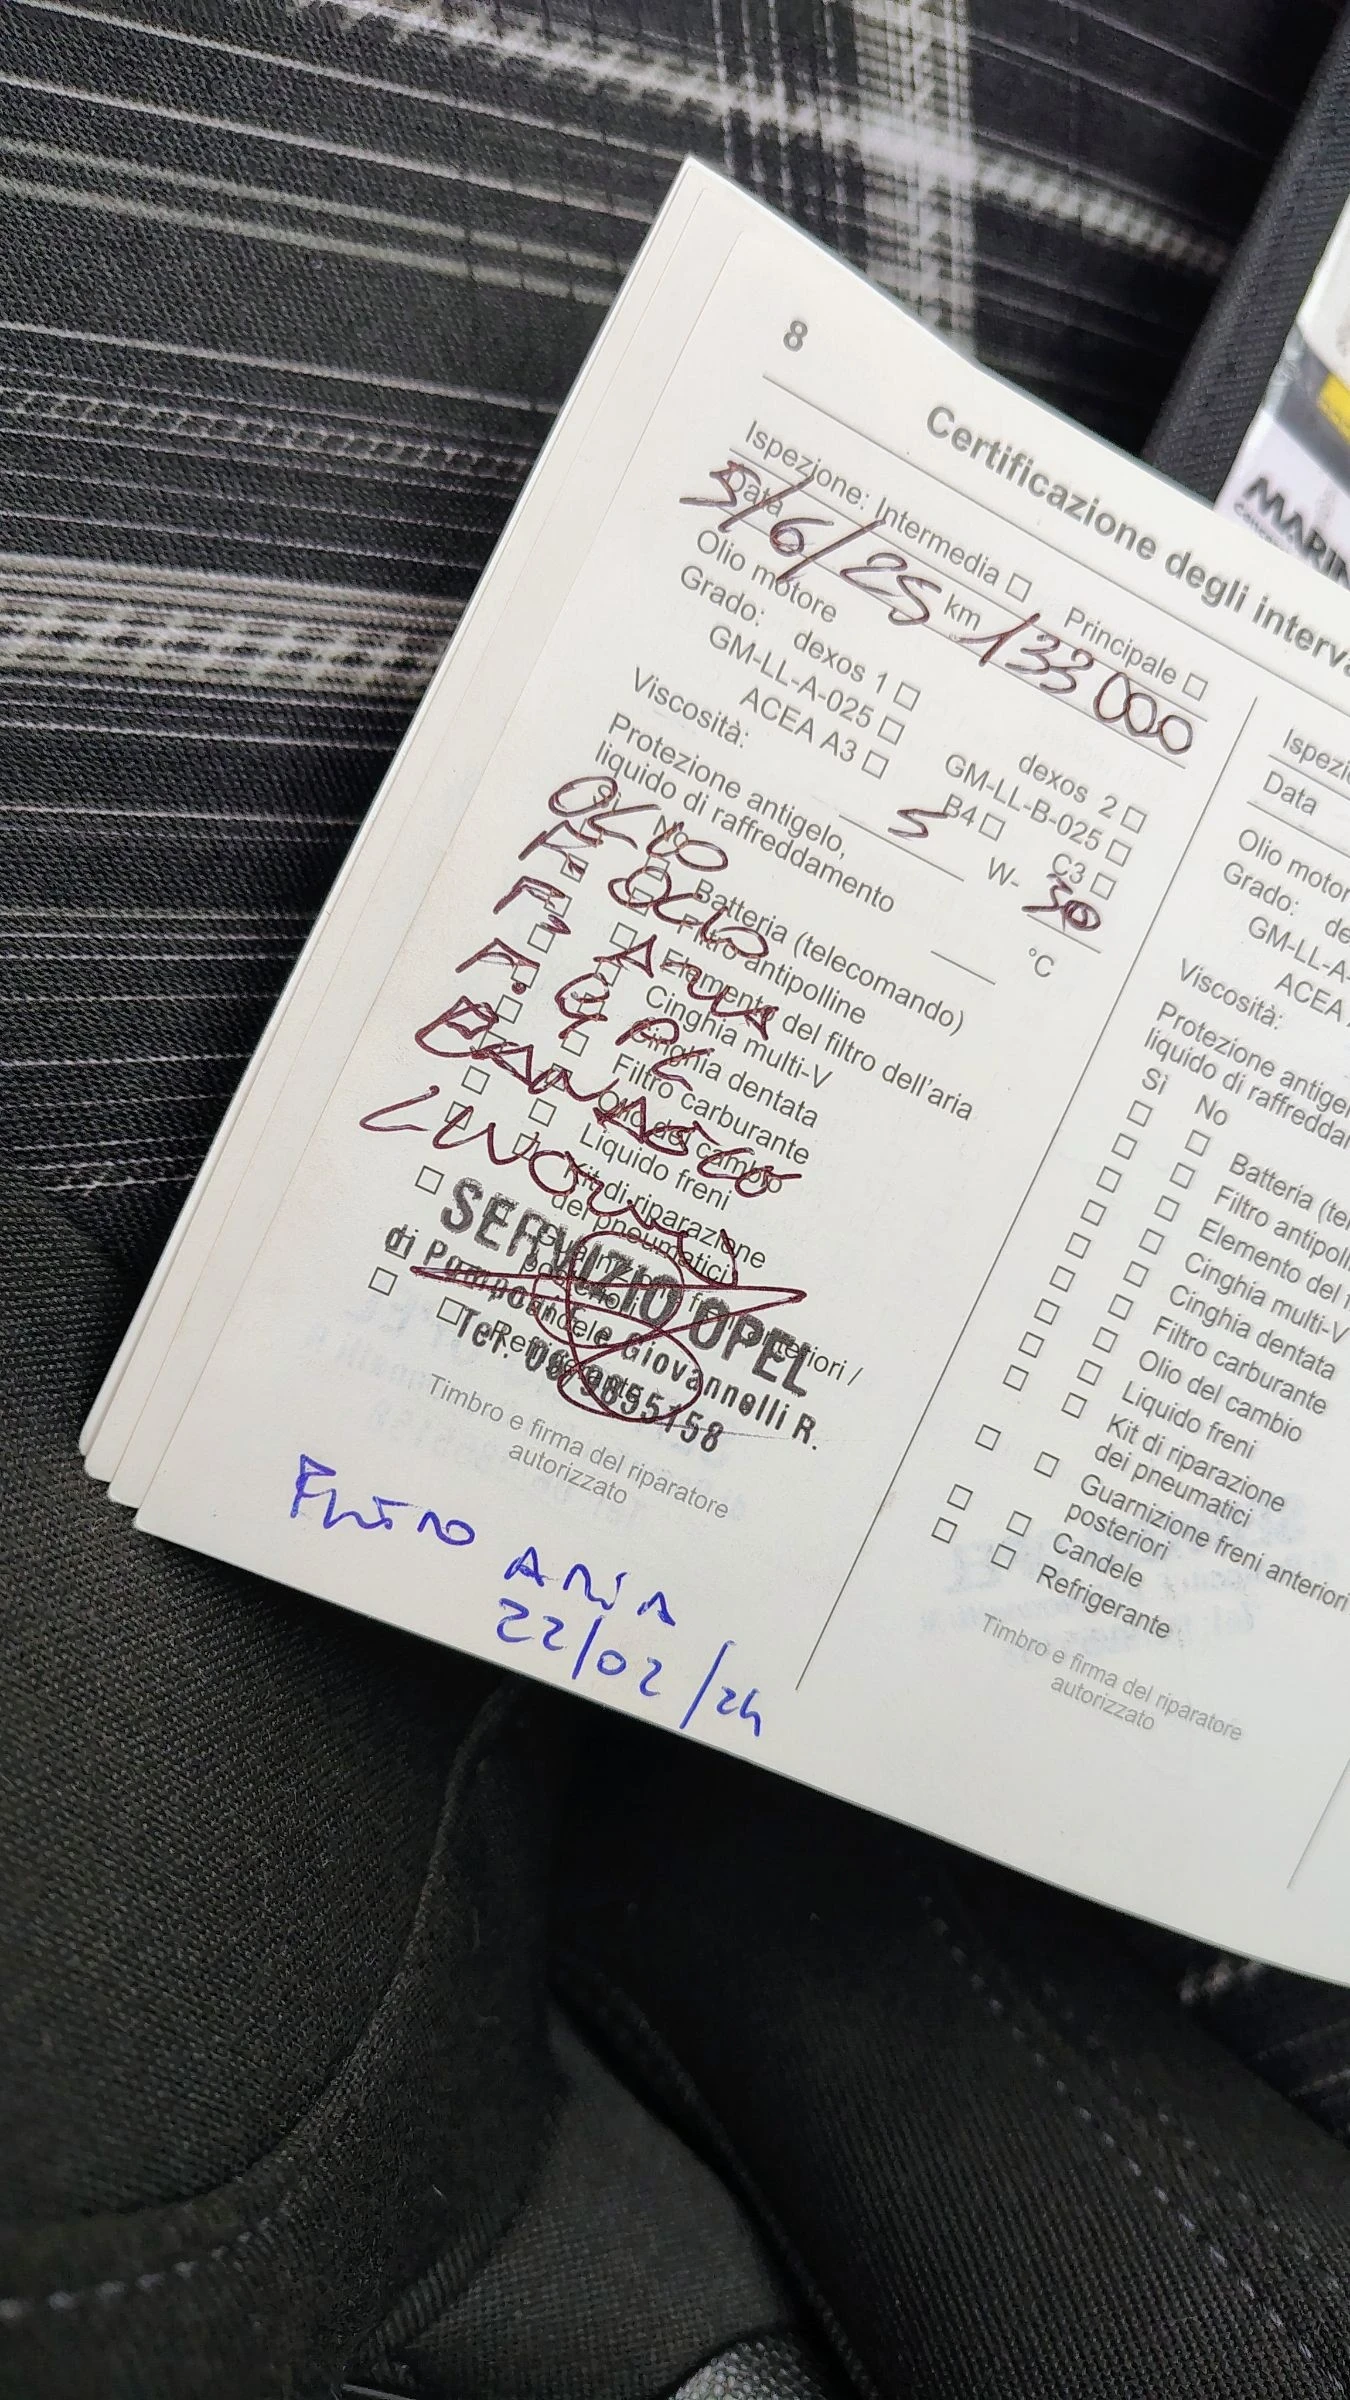 8
Certificazione degli interv
Ispezione: Intermedia □ Principale □
Data 5/6/25 km 133000
Olio motore
Grado: dexos 1 □ dexos 2 □
GM-LL-A-025 □ GM-LL-B-025 □
ACEA A3 □ B4 □ C3 □
Viscosità: 5 W- 30
Protezione antigelo,
liquido di raffreddamento °C
Sì No
OLIO
F. OLIO
F. ARIA
F. GPL
Batteria (telecomando)
Filtro antipolline
Elemento del filtro dell'aria
Cinghia multi-V
Cinghia dentata
Filtro carburante
Olio del cambio
Liquido freni
Kit di riparazione
dei pneumatici
posteriori
Refrigerante
SERVIZIO OPEL
Giovannelli R.
Timbro e firma del riparatore
autorizzato
FILTRO
ARIA
22/02/24
Ispezi
Data
Olio motor
Grado: de
GM-LL-A-
ACEA
Viscosità:
Protezione antige
liquido di raffredda
Sì No
Batteria (te
Filtro antipoll
Elemento del
Cinghia multi-V
Cinghia dentata
Filtro carburante
Olio del cambio
Liquido freni
Kit di riparazione
dei pneumatici
Guarnizione freni anteriori
posteriori
Candele
Refrigerante
Timbro e firma del riparatore
autorizzato
MARIN